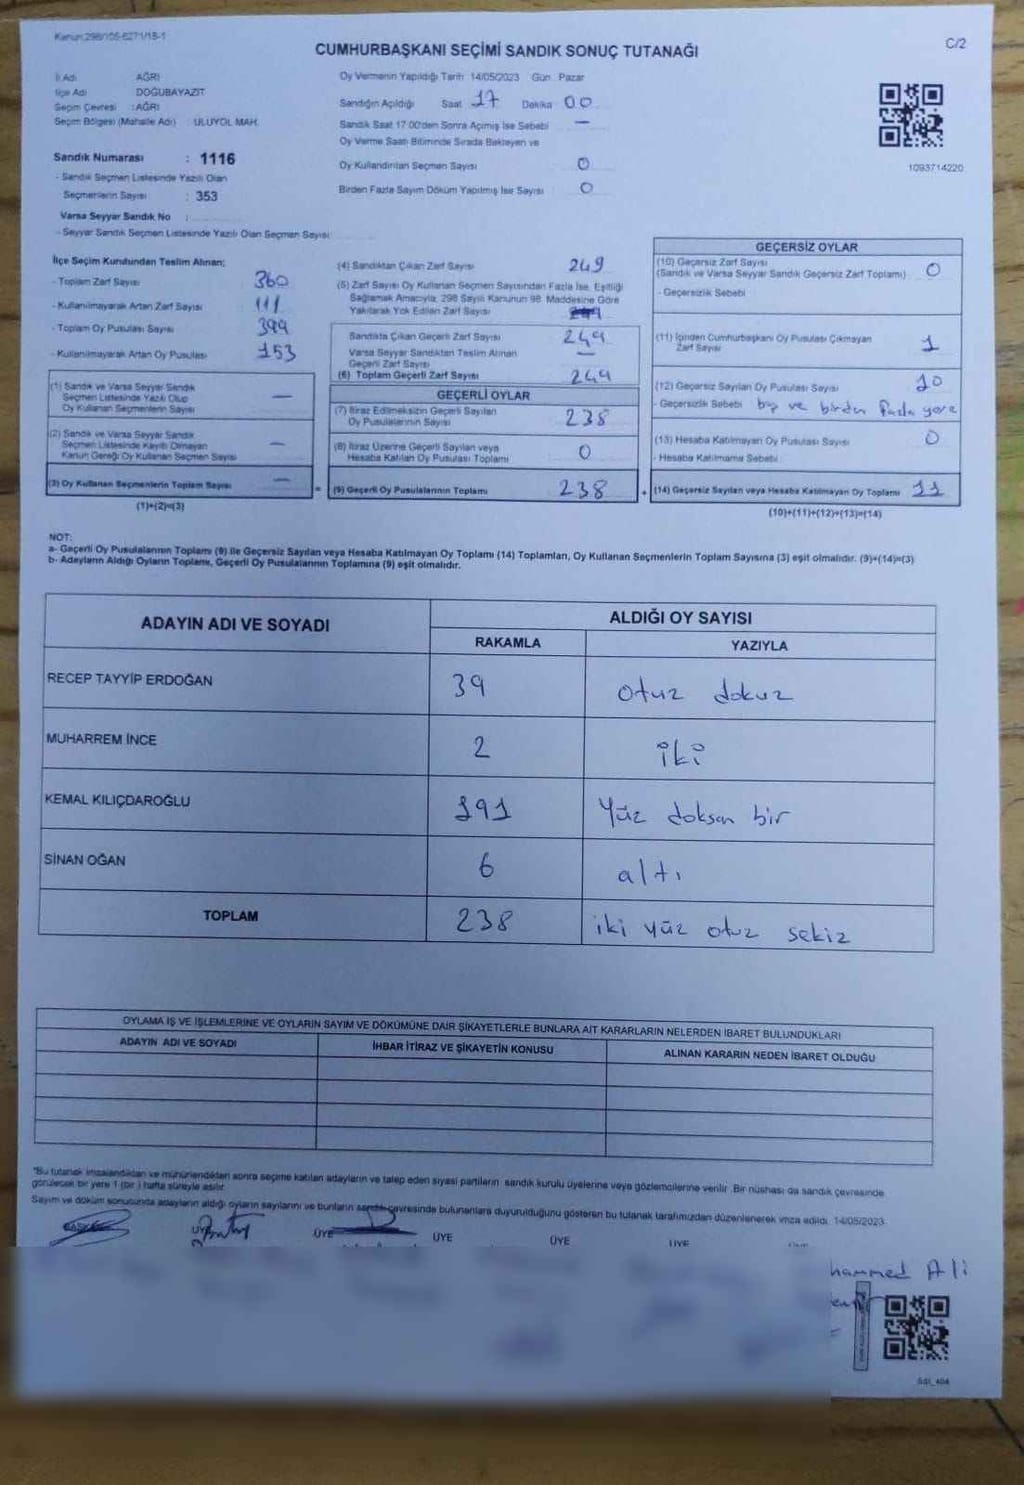 Kanun:298/105-6271/18-1
C/2
CUMHURBAŞKANI SEÇİMİ SANDIK SONUÇ TUTANAĞI
İl Adı AĞRI
İlçe Adı DOĞUBAYAZIT
Seçim Çevresi :AĞRI
Seçim Bölgesi (Mahalle Adı) : ULUYOL MAH.
Sandık Numarası : 1116
- Sandık Seçmen Listesinde Yazılı Olan
Seçmenlerin Sayısı : 353
Varsa Seyyar Sandık No :
- Seyyar Sandık Seçmen Listesinde Yazılı Olan Seçmen Sayısı
Oy Vermenin Yapıldığı Tarih 14/05/2023 Gün Pazar
Sandığın Açıldığı Saat 17 Dakika 00
Sandık Saat 17.00'den Sonra Açılmış İse Sebebi —
Oy Verme Saati Bitiminde Sırada Bekleyen ve
Oy Kullandırılan Seçmen Sayısı 0
Birden Fazla Sayım Döküm Yapılmış İse Sayısı 0
1093714220
İlçe Seçim Kurulundan Teslim Alınan;
- Toplam Zarf Sayısı 360
- Kullanılmayarak Artan Zarf Sayısı 111
- Toplam Oy Pusulası Sayısı 399
- Kullanılmayarak Artan Oy Pusulası 153
(1) Sandık ve Varsa Seyyar Sandık
Seçmen Listesinde Yazılı Olup
Oy Kullanan Seçmenlerin Sayısı —
(2) Sandık ve Varsa Seyyar Sandık
Seçmen Listesinde Kayıtlı Olmayan
Kanun Gereği Oy Kullanan Seçmen Sayısı —
(3) Oy Kullanan Seçmenlerin Toplam Sayısı —
(1)+(2)=(3)
(4) Sandıktan Çıkan Zarf Sayısı 249
(5) Zarf Sayısı Oy Kullanan Seçmen Sayısından Fazla İse, Eşitliği
Sağlamak Amacıyla, 298 Sayılı Kanunun 98. Maddesine Göre
Yakılarak Yok Edilen Zarf Sayısı
Sandıkta Çıkan Geçerli Zarf Sayısı 249
Varsa Seyyar Sandıktan Teslim Alınan
Geçerli Zarf Sayısı —
(6) Toplam Geçerli Zarf Sayısı 249
GEÇERLİ OYLAR
(7) İtiraz Edilmeksizin Geçerli Sayılan
Oy Pusulalarının Sayısı 238
(8) İtiraz Üzerine Geçerli Sayılan veya
Hesaba Katılan Oy Pusulası Toplamı 0
= (9) Geçerli Oy Pusulalarının Toplamı 238
GEÇERSİZ OYLAR
(10) Geçersiz Zarf Sayısı
(Sandık ve Varsa Seyyar Sandık Geçersiz Zarf Toplamı) 0
- Geçersizlik Sebebi
(11) İçinden Cumhurbaşkanı Oy Pusulası Çıkmayan
Zarf Sayısı 1
(12) Geçersiz Sayılan Oy Pusulası Sayısı 10
- Geçersizlik Sebebi boş ve birden fazla yere
(13) Hesaba Katılmayan Oy Pusulası Sayısı 0
- Hesaba Katılmama Sebebi
+ (14) Geçersiz Sayılan veya Hesaba Katılmayan Oy Toplamı 11
(10)+(11)+(12)+(13)=(14)
NOT:
a- Geçerli Oy Pusulalarının Toplamı (9) ile Geçersiz Sayılan veya Hesaba Katılmayan Oy Toplamı (14) Toplamları, Oy Kullanan Seçmenlerin Toplam Sayısına (3) eşit olmalıdır. (9)+(14)=(3)
b- Adayların Aldığı Oyların Toplamı, Geçerli Oy Pusulalarının Toplamına (9) eşit olmalıdır.
ADAYIN ADI VE SOYADI ALDIĞI OY SAYISI
RAKAMLA YAZIYLA
RECEP TAYYİP ERDOĞAN 39 otuz dokuz
MUHARREM İNCE 2 iki
KEMAL KILIÇDAROĞLU 191 Yüz doksan bir
SİNAN OĞAN 6 altı
TOPLAM 238 iki yüz otuz sekiz
OYLAMA İŞ VE İŞLEMLERİNE VE OYLARIN SAYIM VE DÖKÜMÜNE DAİR ŞİKAYETLERLE BUNLARA AİT KARARLARIN NELERDEN İBARET BULUNDUKLARI
ADAYIN ADI VE SOYADI İHBAR İTİRAZ VE ŞİKAYETİN KONUSU ALINAN KARARIN NEDEN İBARET OLDUĞU
"Bu tutanak imzalandıktan ve mühürlendikten sonra seçime katılan adayların ve talep eden siyasi partilerin sandık kurulu üyelerine veya gözlemcilerine verilir. Bir nüshası da sandık çevresinde
görülecek bir yere 1 (bir) hafta süreyle asılır.
Sayım ve döküm sonucunda adayların aldığı oyların sayılarını ve bunların sandık çevresinde bulunanlara duyurulduğunu gösteren bu tutanak tarafımızdan düzenlenerek imza edildi. 14/05/2023
BAŞKAN ÜYE ÜYE ÜYE ÜYE ÜYE
hammed Ali